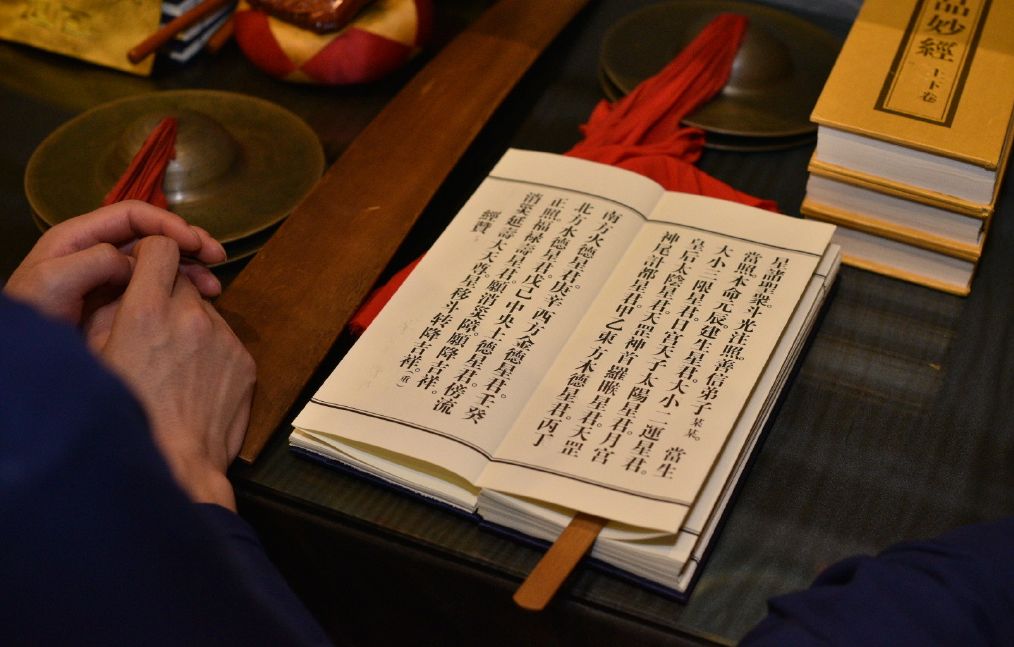 星諸聖衆。斗光注照。善信弟子某某。當生
當照。本命元辰。建生星君。大小二運星君。
大小三限星君。日宮天子太陽星君。月宮
皇后太陰星君。天罡神首羅睺星君。天罡
神尾計都星君。甲乙東方木德星君。丙丁
南方火德星君。庚辛西方金德星君。壬癸
北方水德星君。戊己中央土德星君。傍流
正照。福祿壽星君。願消災障。願降吉祥。
消災延壽大天尊。星移斗转降吉祥。(重)
經贊
品妙經
上下卷